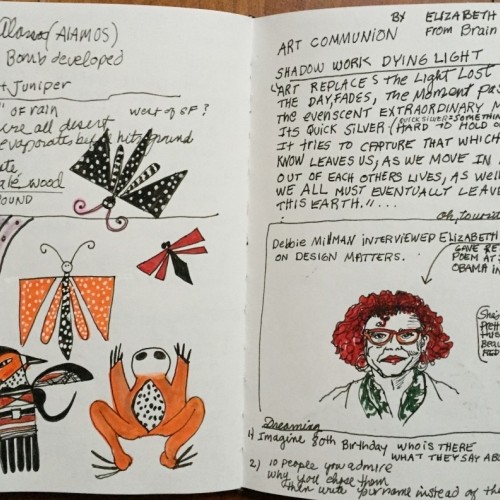 Alamos (ALAMOS)
Bomb developed
+ Juniper
" of rain west of SF?
are all desert
evaporates before hits ground
wood
OUND
BY ELIZABETH
From Brain
ART COMMUNION
SHADOW WORK DYING LIGHT
"ART REPLACES the Light Lost
THE DAY, FADES, the Moment pas
the evenscent EXTRAORDINARY M
QUICK SILVER = SOMETHIN
Its QUICK SILVER (HARD TO HOLD O
IT tries to CAPTURE THAT WHICH
KNOW LEAVES US, AS WE MOVE IN
OUT OF EACH OTHERS LIVES, AS WELL
WE ALL MUST EVENTUALLY LEAVE
THIS EARTH."...
oh, tourist
Debbie Millman INTERVIEWED ELIZABETH
ON DESIGN MATTERS.
GAVE
POEM AT
OBAMA IN
She's
HUG
BEAU
RED
Dreaming
1) Imagine 80th Birthday WHO IS THERE
WHAT THEY SAY ABO
2) 10 people you admire
why you chose them
then write your name instead of the